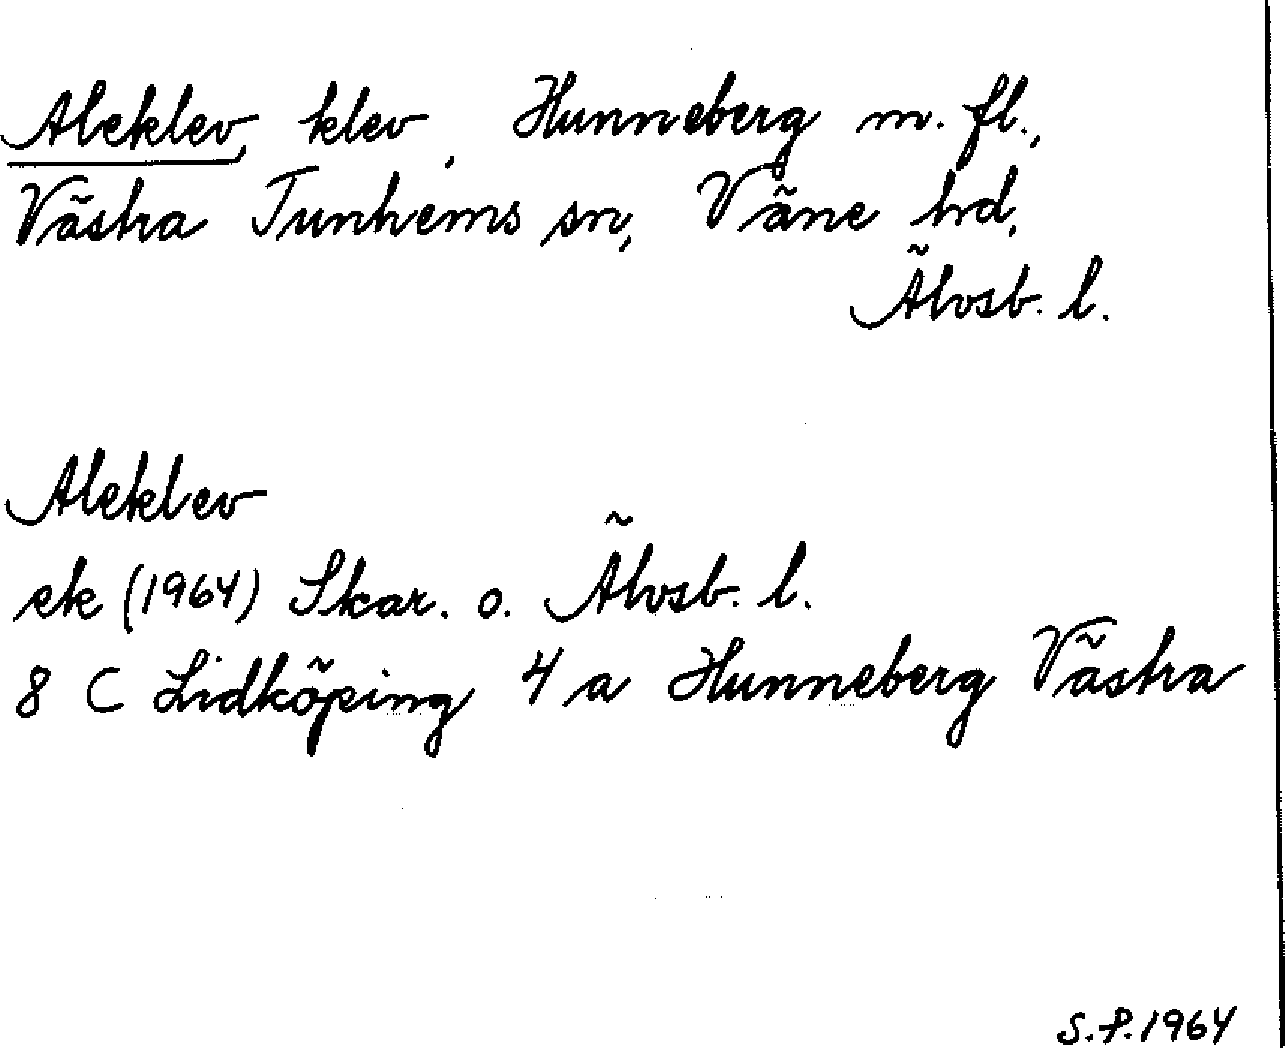 Aleklev, klev, Hunneberg m. fl.,
Västra Tunhems sn, Väne hd,
Älvsb. l.
Aleklev
ek (1964) Skar. o. Älvsb. l.
8 C Lidköping 4 a Hunneberg Västra
S.P. 1964